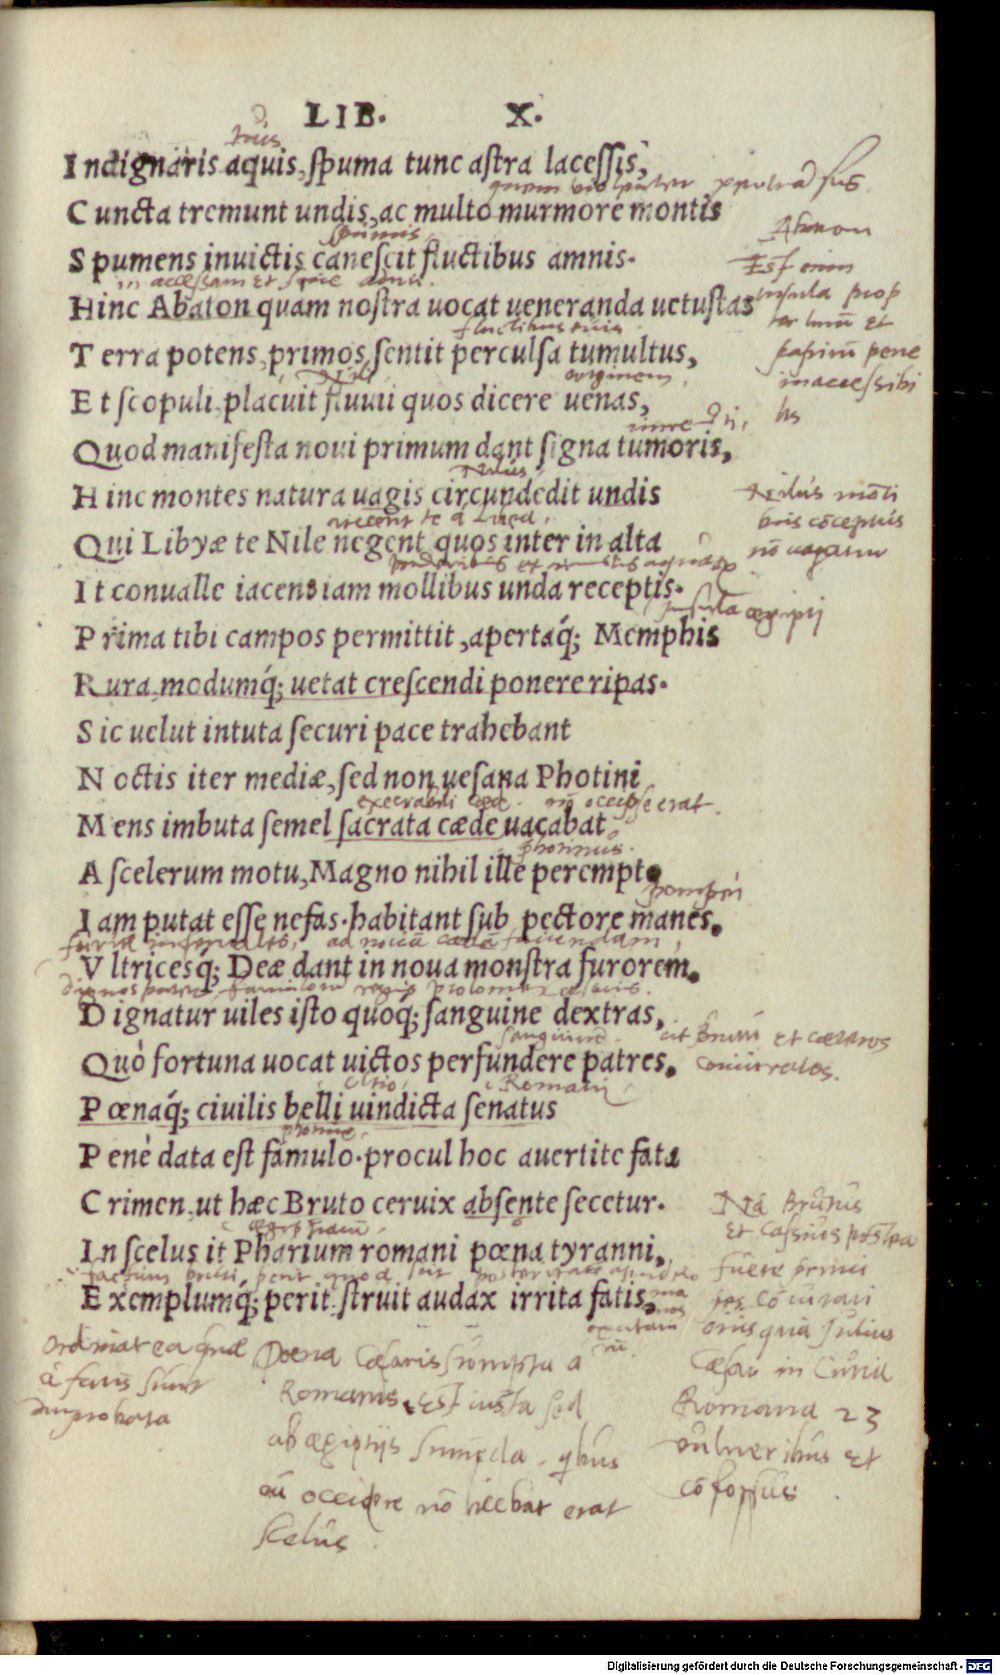 LIB. X.
tuis
Indignaris aquis, spuma tunc astra lacessis,
Cuncta tremunt undis, ac multo murmore montis
spumis
Spumens inuictis canescit fluctibus amnis.
Hinc Abaton quam nostra uocat ueneranda uetustas
fluctibus tuis
Terra potens, primos sentit perculsa tumultus,
Nili originem
Et scopuli, placuit fluuii quos dicere uenas,
Quod manifesta noui primum dant signa tumoris,
Nilus
Hinc montes natura uagis circundedit undis
Qui Libyæ te Nile negent, quos inter in alta
It conualle iacens iam mollibus unda receptis.
insula ægipti
Prima tibi campos permittit, apertaq́; Memphis
Rura, modumq́; uetat crescendi ponere ripas.
Sic uelut in tuta securi pace trahebant
Noctis iter mediæ, sed non uesana Photini
execrabili cæde
Mens imbuta semel sacrata cæde uacabat
photinus
A scelerum motu, Magno nihil ille perempto
pompeii
Iam putat esse nefas. habitant sub pectore manes,
Vltricesq́; Deæ dant in noua monstra furorem.
Dignatur uiles isto quoq́; sanguine dextras,
sanguine
Quò fortuna uocat uictos perfundere patres.
ultio Romani
Pœnaq́; ciuilis belli uindicta senatus
Penè data est famulo. procul hoc auertite fata
Crimen, ut hæc Bruto ceruix absente secetur.
In scelus it Pharium romani pœna tyranni,
Exemplumq́; perit. struit audax irrita fatis,
Est enim
insula prop
inaccessibi
lis
Nilus mōti
bus cōceptus
nō uagatur
ut Brutū et cæteros
coniuratos.
Nā Brutus
et Cassius postea
fuere princi
pes cōiurati
onis qua Julius
Cæsar in Curia
Romana 23
uulneribus et
cōfossus
ordinat ea quæ
à fatis sunt
improbata
Poena Cæsaris sumpta a
Romanis, est iusta sed
ab ægiptijs sumenda, qbus
eū occidere nō licebat erat
scelus
Digitalisierung gefördert durch die Deutsche Forschungsgemeinschaft - DFG